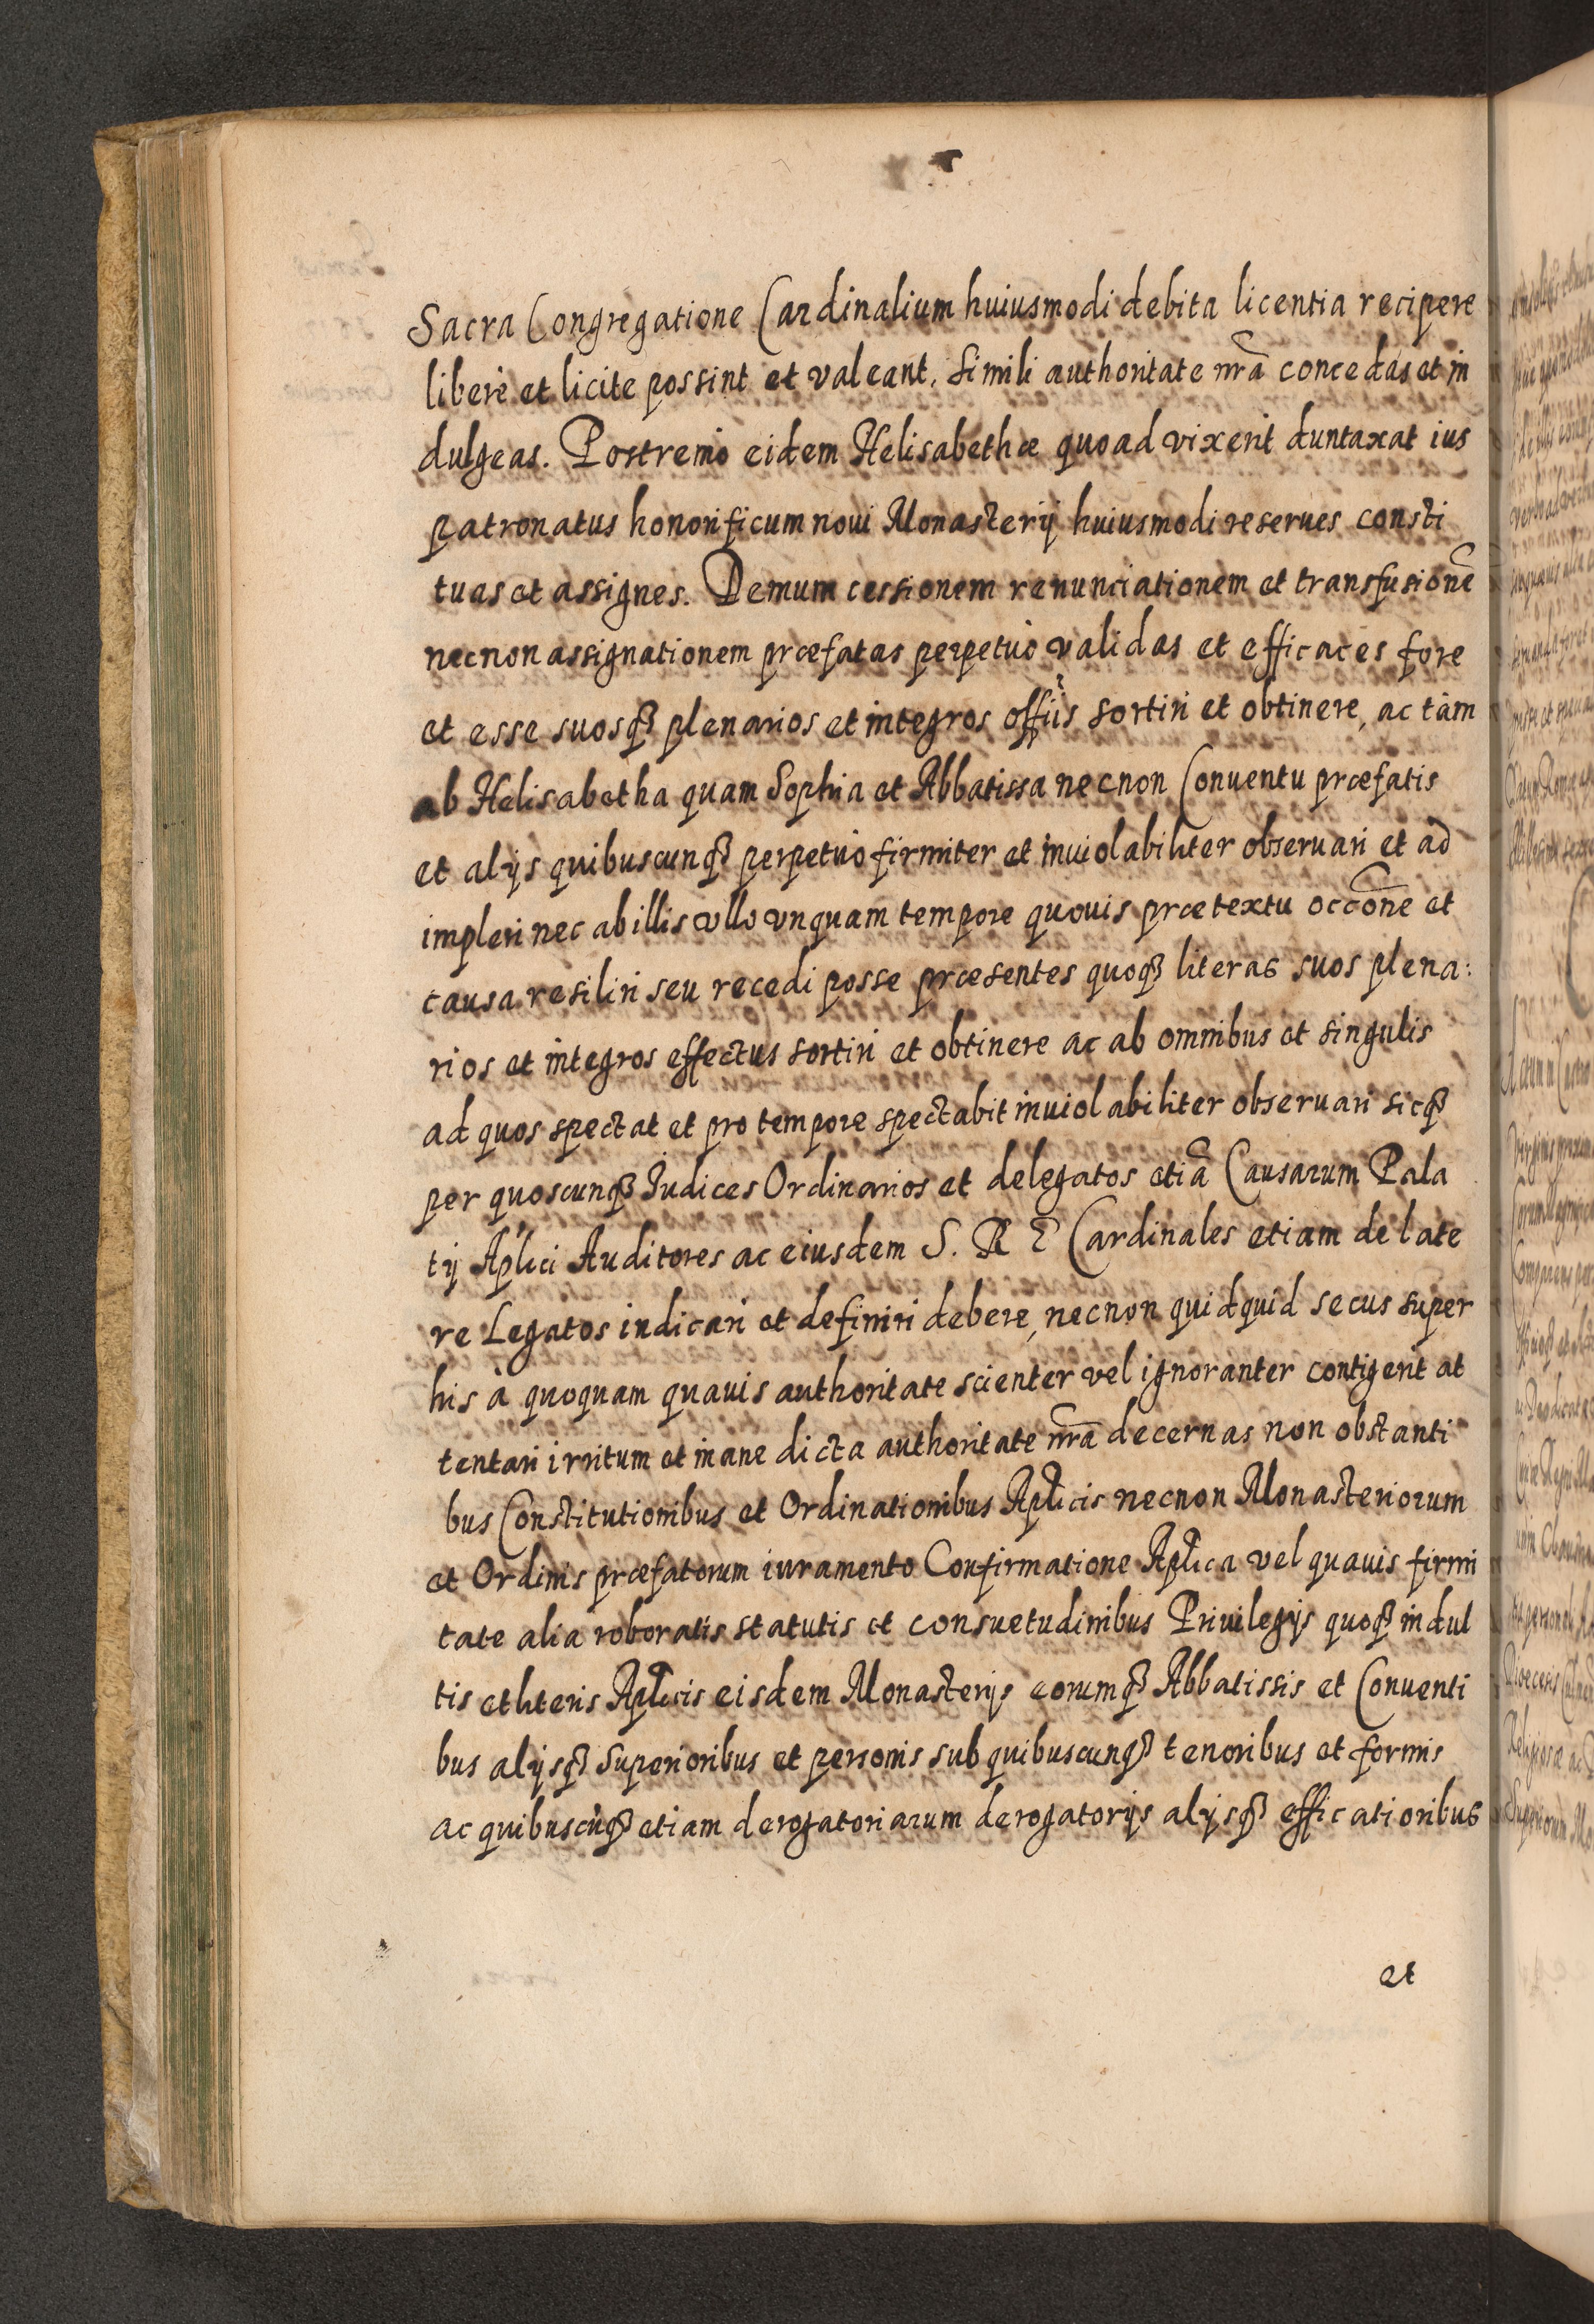 Sacra Congregatione Cardinalium huiusmodi debita licentia recipere
liberè et licite possint et valeant. Simili authoritate nr̃a concedas et in
dulgeas. Postremò eidem Helisabethæ quoad vixerit duntaxat ius
patronatus honorificum noui Monasterij huiusmodi reserues consti
tuas et assignes. Demum cessionem renunciationem et transfusionẽ
necnon assignationem præfatas perpetuò validas et efficaces fore
et esse suosqꝫ plenarios et integros sortiri et obtinere, ac tàm
ab Helisabetha quam Sophia et Abbatissa necnon Conuentu præfatis
et alijs quibuscunqꝫ perpetuò firmiter et inuiolabiliter obseruari et ad
impleri nec ab illis vllo vnquam tempore quouis prætextu occõne et
causa resiliri seu recedi posse præsentes quoqꝫ literas suos plena:
rios et integros effectus sortiri et obtinere ac ab omnibus et singulis
ad quos spectat et pro tempore spectabit inuiolabiliter obseruari sicqꝫ
per quoscunqꝫ Judices Ordinarios et delegatos etiã Causarum Pala
tij Aplici Auditores ac eiusdem S. R E Cardinales etiam de late
re Legatos iudicari et definiri debere, necnon quidquid secus super
his à quoquam quauis authoritate scienter vel ignoranter contigerit at
tentari irritum et inane dicta authoritate nr̃a decernas non obstanti
bus Constitutionibus et Ordinationibus Aplicis necnon Monasteriorum
et Ordinis præfatorum iuramento Confirmatione Aplica vel quauis firmi
tate alia roboratis statutis et consuetudinibus Priuilegijs quoqꝫ indul
tis et literis Aplicis eisdem Monasterijs eorumqꝫ Abbatissis et Conuenti
bus alijsqꝫ Superioribus et personis sub quibuscunqꝫ tenoribus et formis
ac quibuscũqꝫ etiam derogatoriarum derogatorijs alijsqꝫ efficatioribus
et